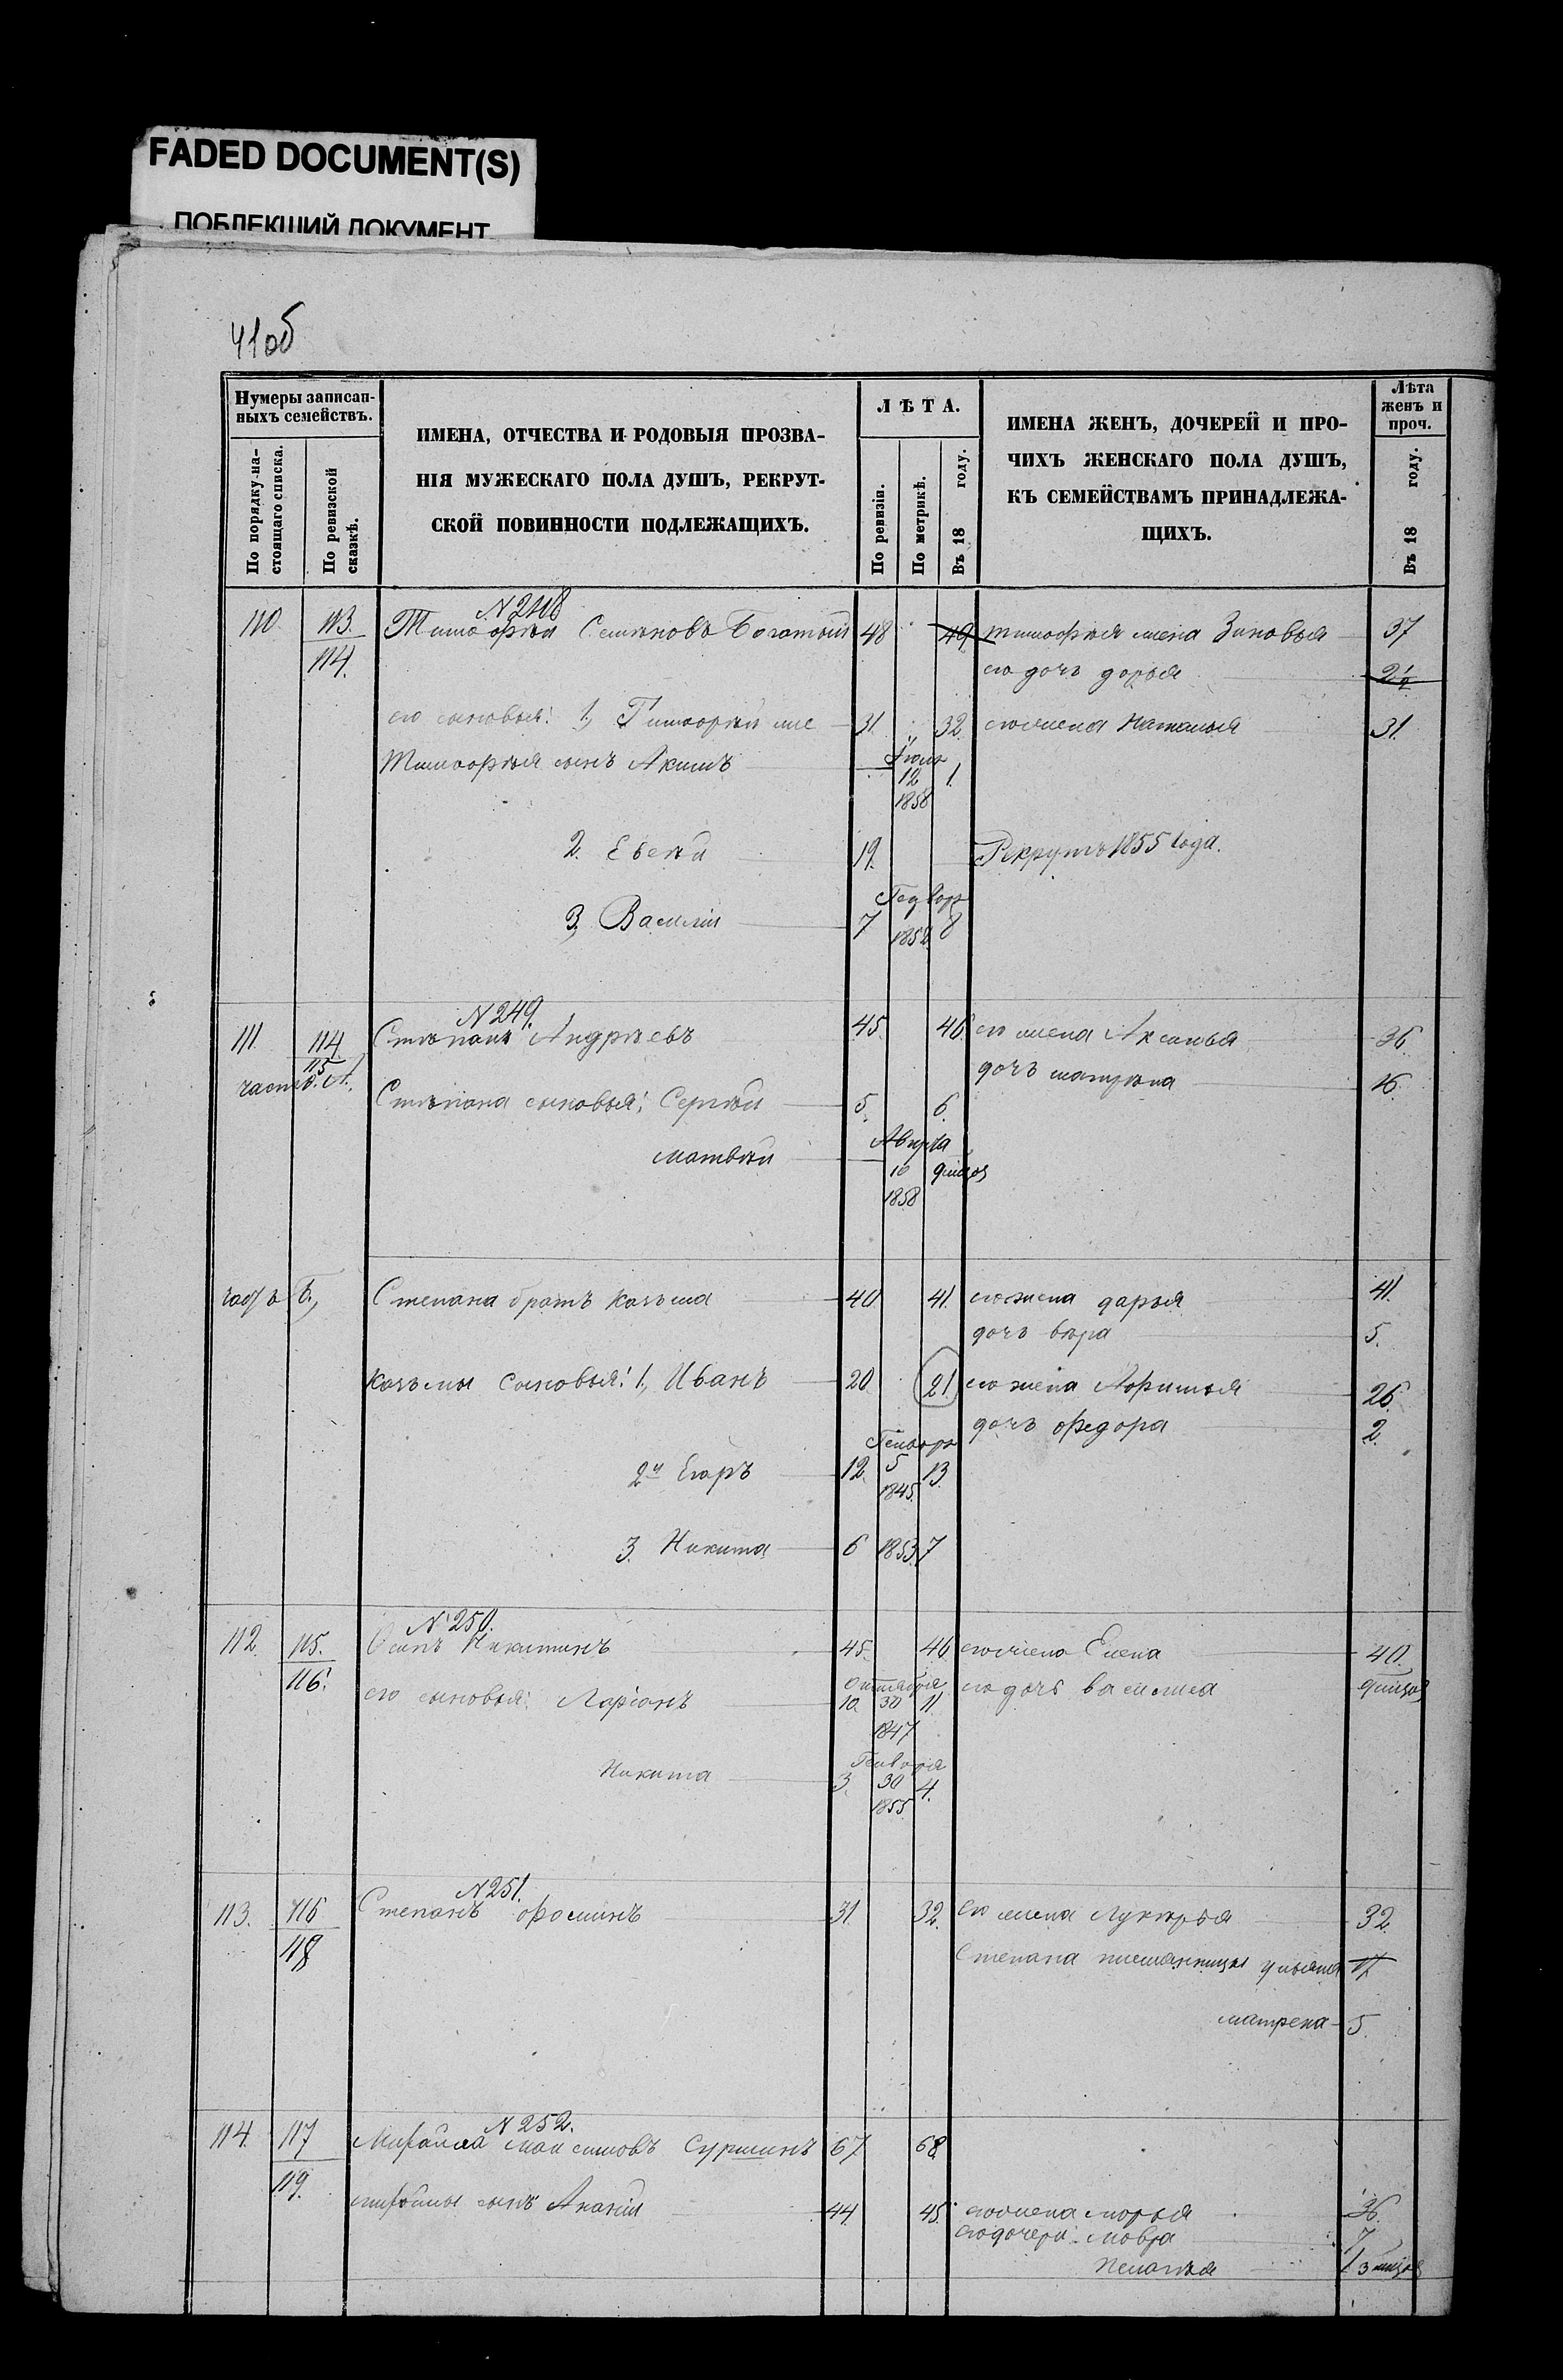 FADED DOCUMENT(S)
ПОБЛЕКШИЙ ДОКУМЕНТ
41об
Нумеры записан-
ныхъ семействъ.
По порядку на-
стоящаго списка.
По ревизской
сказкѣ.
ИМЕНА, ОТЧЕСТВА И РОДОВЫЯ ПРОЗВА-
НІЯ МУЖЕСКАГО ПОЛА ДУШЪ, РЕКРУТ-
СКОЙ ПОВИННОСТИ ПОДЛЕЖАЩИХЪ.
ЛѢТА.
По ревизіи.
По метрикѣ.
Въ 18 году.
ИМЕНА ЖЕНЪ, ДОЧЕРЕЙ И ПРО-
ЧИХЪ ЖЕНСКАГО ПОЛА ДУШЪ,
КЪ СЕМЕЙСТВАМЪ ПРИНАДЛЕЖА-
ЩИХЪ.
Лѣта
женъ и
проч.
Въ 18 году.
N 248
110 113. Тимофѣй Семеновъ Богатый 48 49 тимофѣя жена Зиновья 37
114. его дочь дарья 21
его сыновья: 1, Тимофей 31 32 его жена Наталья 31.
Тимофѣя сынъ Акимъ Іюля 12 1858 1.
2. Евсей 19. Рекрутъ 1855 года.
3, Василій 7 Генваря 1852 8
N 249.
111. 114 Степанъ Андреевъ 45. 46. его жена Аксинья 36.
115
часть А, дочь матрена 16.
Степана сыновья: Сергѣй 5. 6.
матвѣй Августа 10 1858 9 мѣцов
часть Б, Степана братъ козьма 40 41. его жена дарья 41.
дочь вѣра 5.
козьмы сыновья: 1, Иванъ 20 21. его жена 26.
дочь федора 2.
2й Егоръ 12. Генваря 5 1845. 13.
3. Никита 6 1853. 7
N 250.
112. 115. Осипъ Никитинъ 45. 46 его жена Елена 40.
116. его сыновья: Ларіонъ 10. Октября 30 1847 11. его дочь василиса 9 мѣцов
Никита 3. Генваря 30 1855 4.
N 251.
113. 116 Степанъ фоминъ 31. 32. его жена Лукерья 32.
118 Степана племянницы ульяна 17
матрена 5.
N 252.
114. 117 Михайла максимовъ Суршинъ 67 68.
119. михайлы сынъ Ананій 44 45. его жена марья 36.
его дочери: мавра 7
Пелагея 3 мѣцов